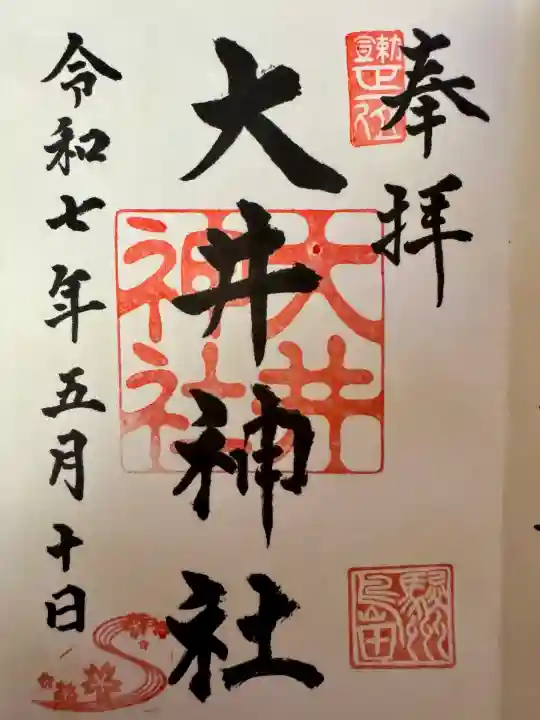 奉拝
大井神社
令和七年五月十日
大井神社
駿州島田